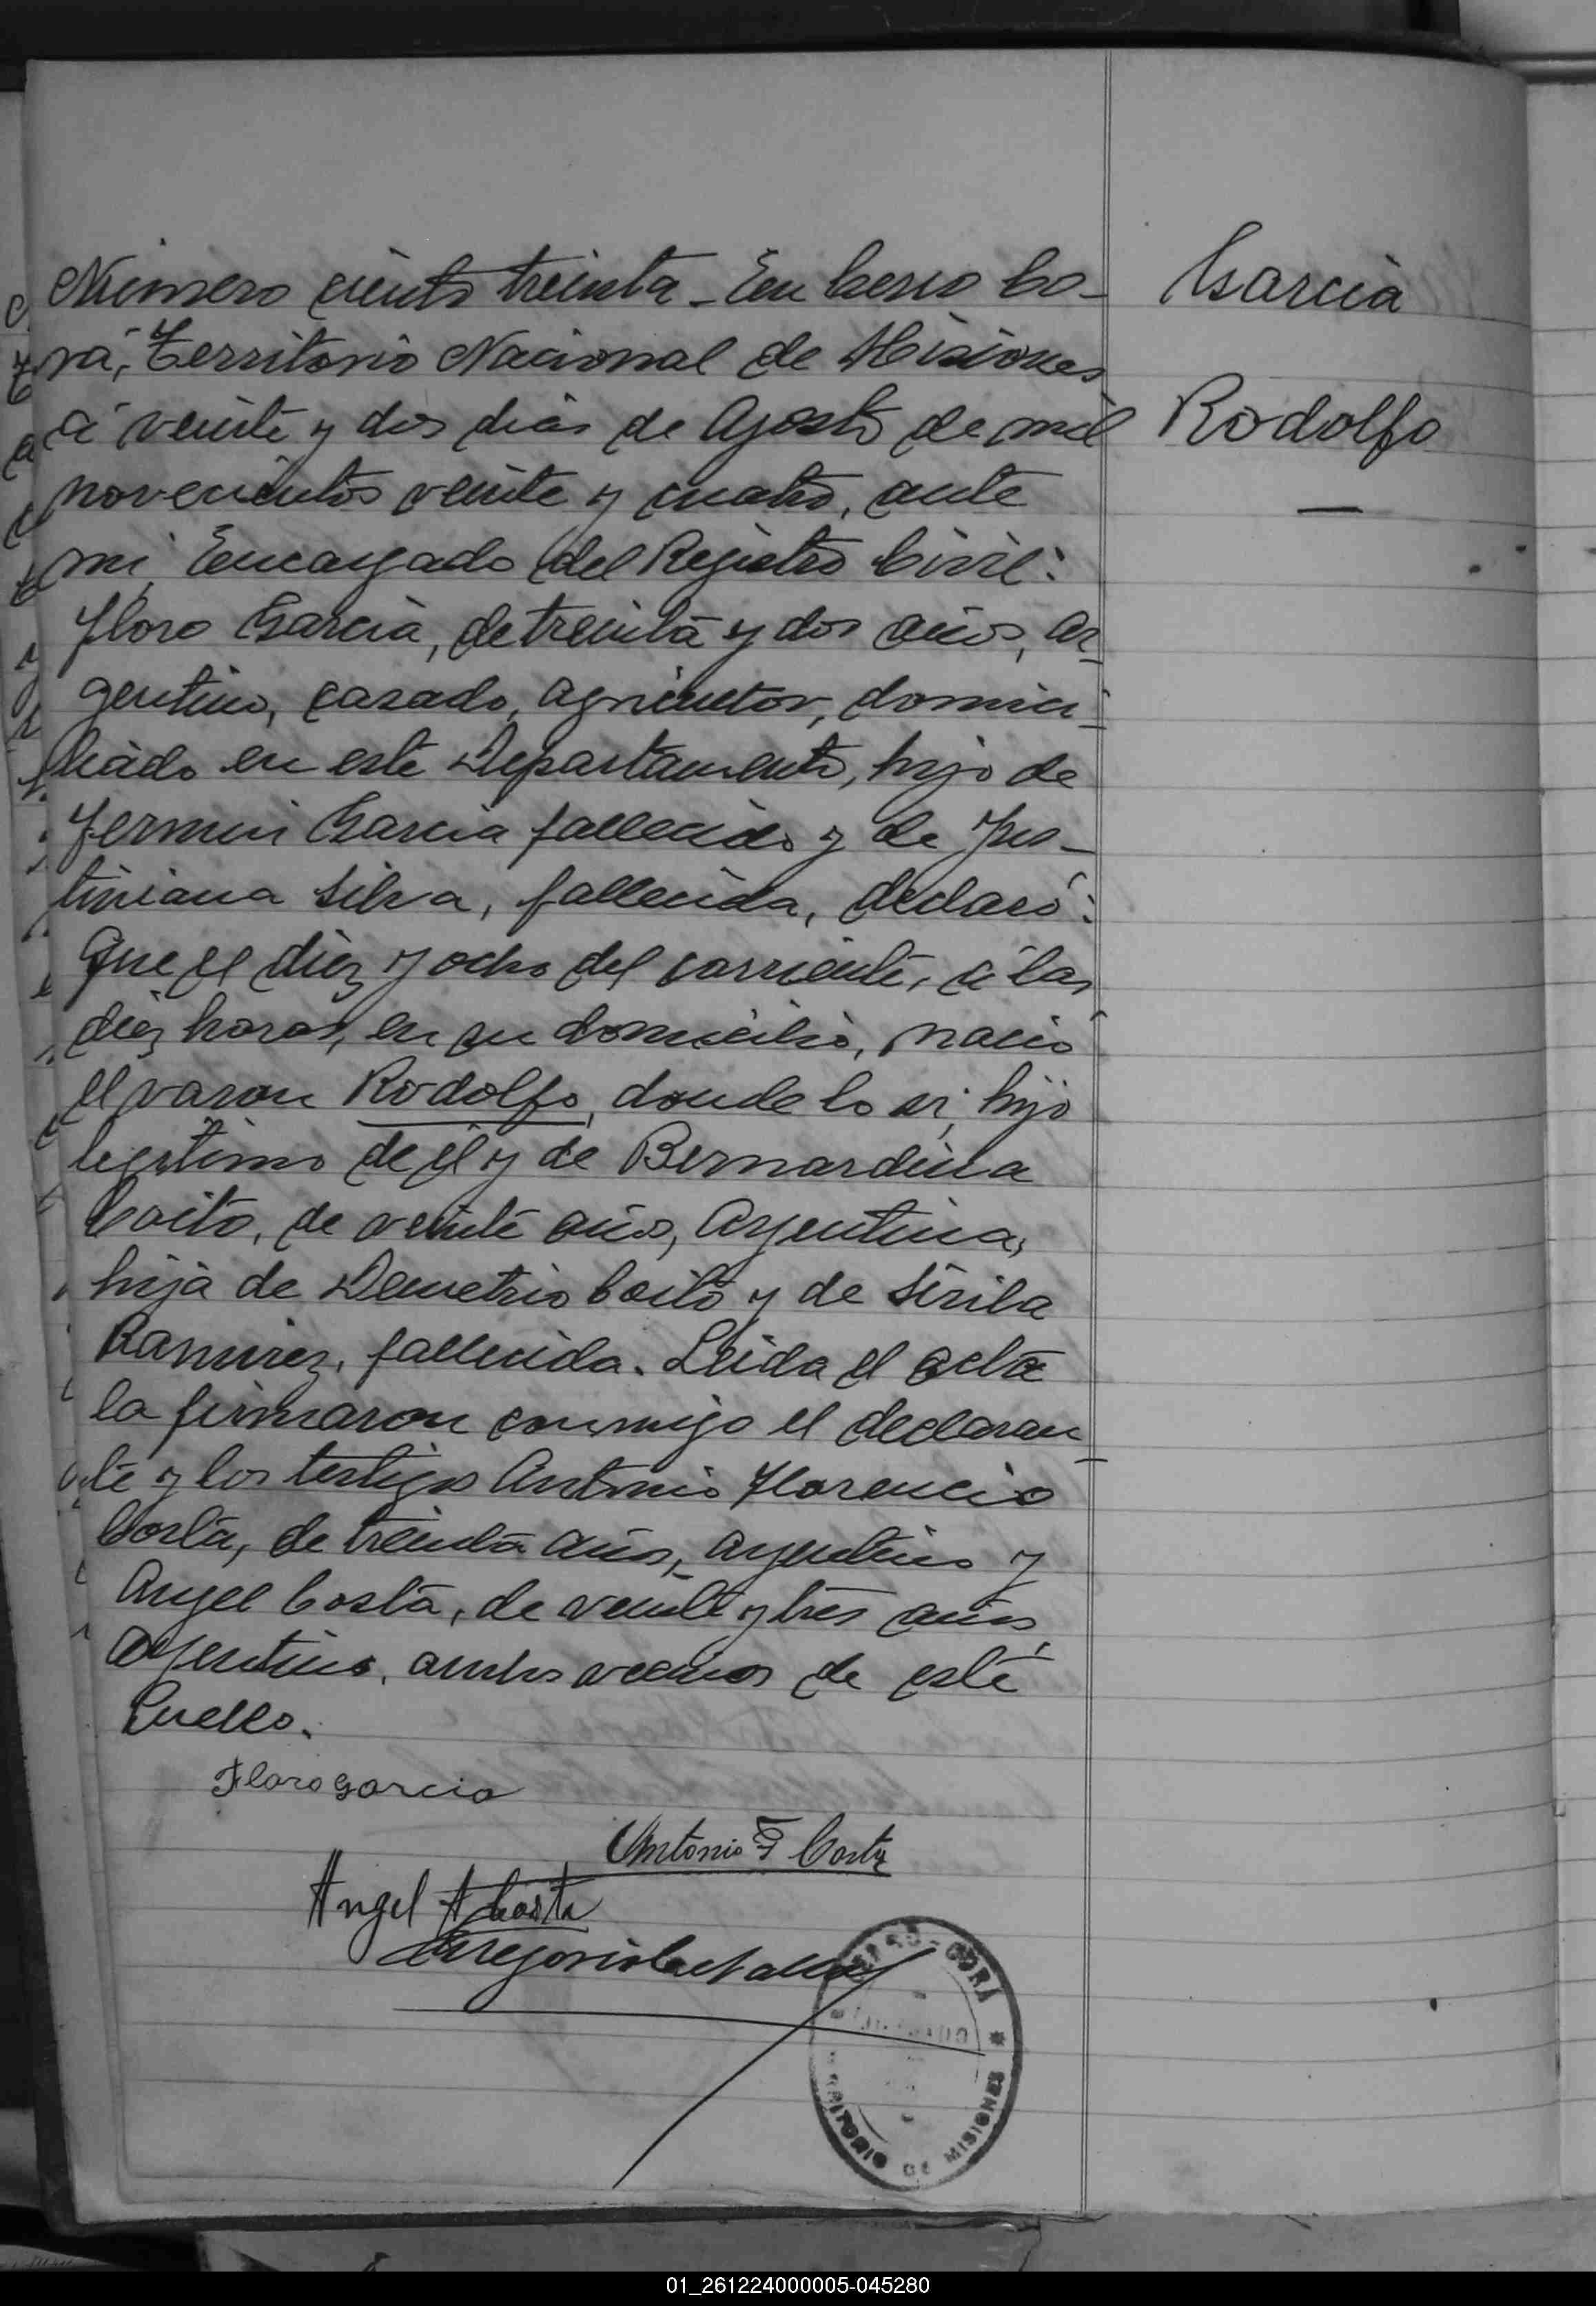 Número ciento treinta - En Cerro Co-
rá, Territorio Nacional de Misiones
á veinte y dos dias de Agosto de mil
novecientos veinte y cuatro, ante
mi, Encargado del Registro Civil:
Floro Garcia, de treinta y dos años, ar-
gentino, casado, agricultor, domici-
liado en este Departamento, hijo de
Fermin Garcia fallecido y de Jus-
tiniana Silva, fallecida, declaró:
Que el diez y ocho del corriente, á las
diez horas, en su domicilio, nació
el varon Rodolfo, donde lo vi, hijo
legitimo de él y de Bernardina
Coito, de veinte años, Argentina,
hija de Demetrio Coito y de Sirila
Ramirez, fallecida. Leida el acta
la firmaron conmigo el declaran-
te y los testigos Antonio Florencio
Costa, de treinta años, argentino y
Angel Costa, de veinte y tres años,
argentino, ambos vecinos de este
Pueblo.
Garcia
Rodolfo
Floro Garcia
Antonio F Costa
Angel A Costa
Gregorio
CERRO-CORÁ
TERRITORIO DE MISIONES
01_261224000005-045280